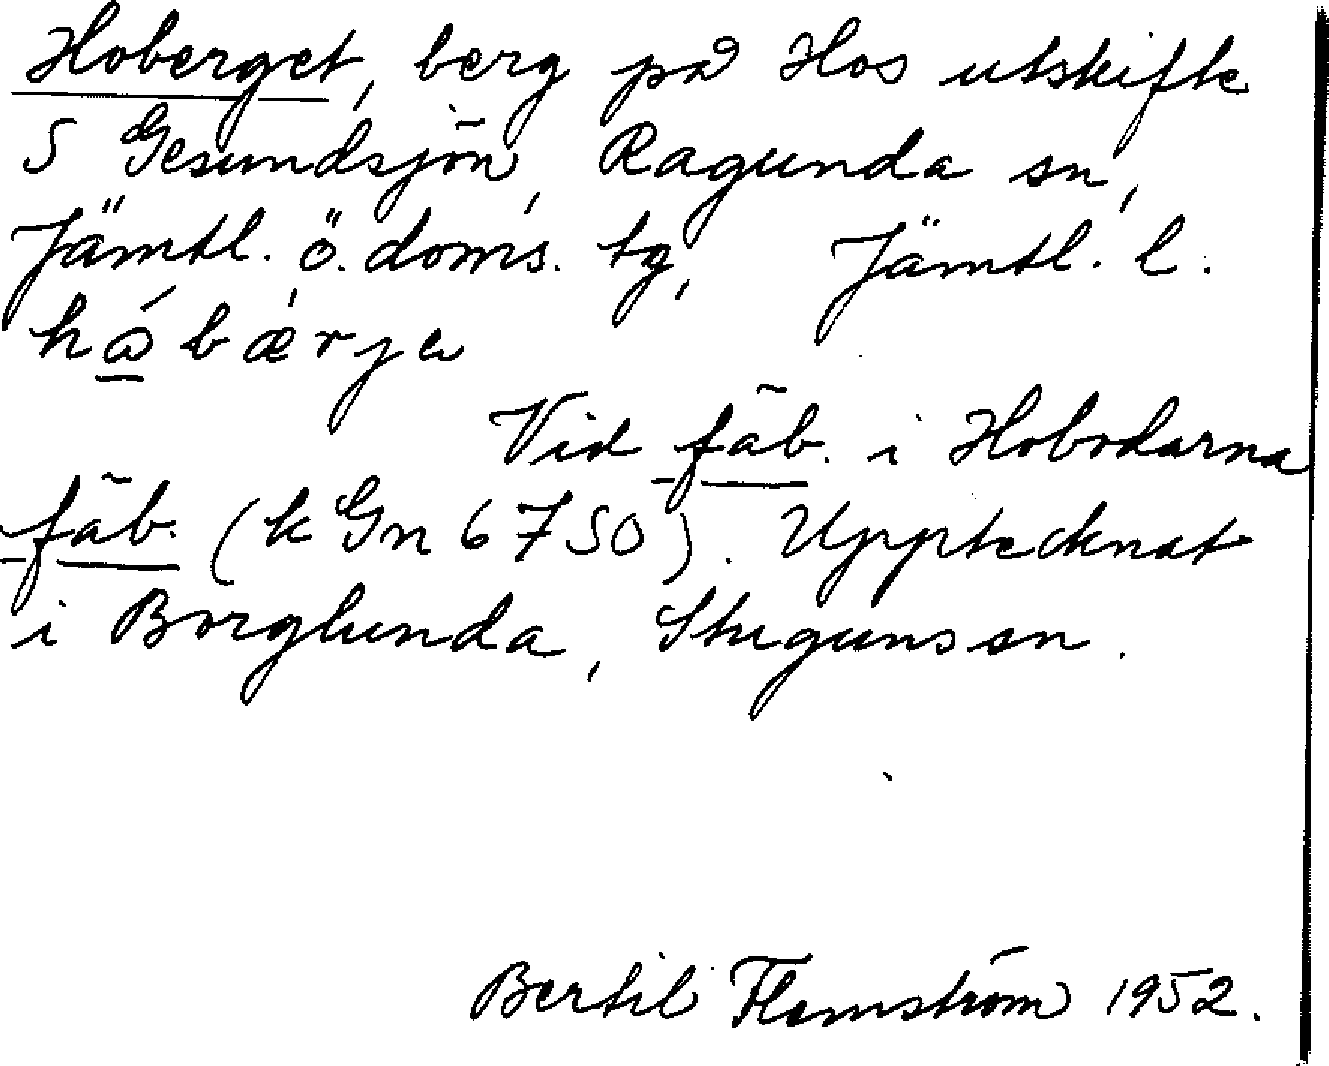 Hoberget, berg på Hos utskifte
S Gesundsjön, Ragunda sn,
Jämtl. ö. doms. tg, Jämtl. l.
hǻbæ̀rjə
Vid fäb. i Hobodarna
fäb. (kGn6750). Upptecknat
i Borglunda, Stuguns sn.
Bertil Flemström 1952.